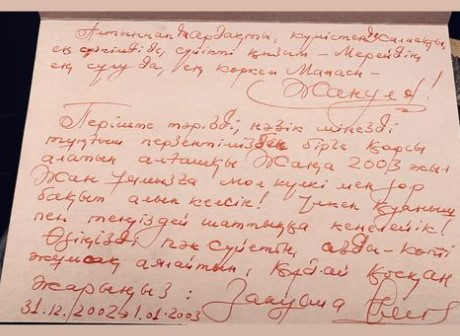 Алтыннан ардақты, күмістен салмақты,
ең сүйкімді де, сүйікті қызым - Мерейдің
ең сұлу да, ең көркем Мамасы -
Жанұя!
Періште тәрізді, нәзік мінезді
тұңғыш перзентімізбен бірге қарсы
алатын алғашқы Жаңа 2003 жыл
Жан ұямызға мол күлкі мен зор
бақыт алып келсін! Үлкен қуаныш
пен теңіздей шаттыққа кенелейік!
Өзіңізді пәк сүйетін, азды-көпті
жұмсақ аялайтын, Құдай қосқан
жарыңыз:
31.12.2002-1.01.2003